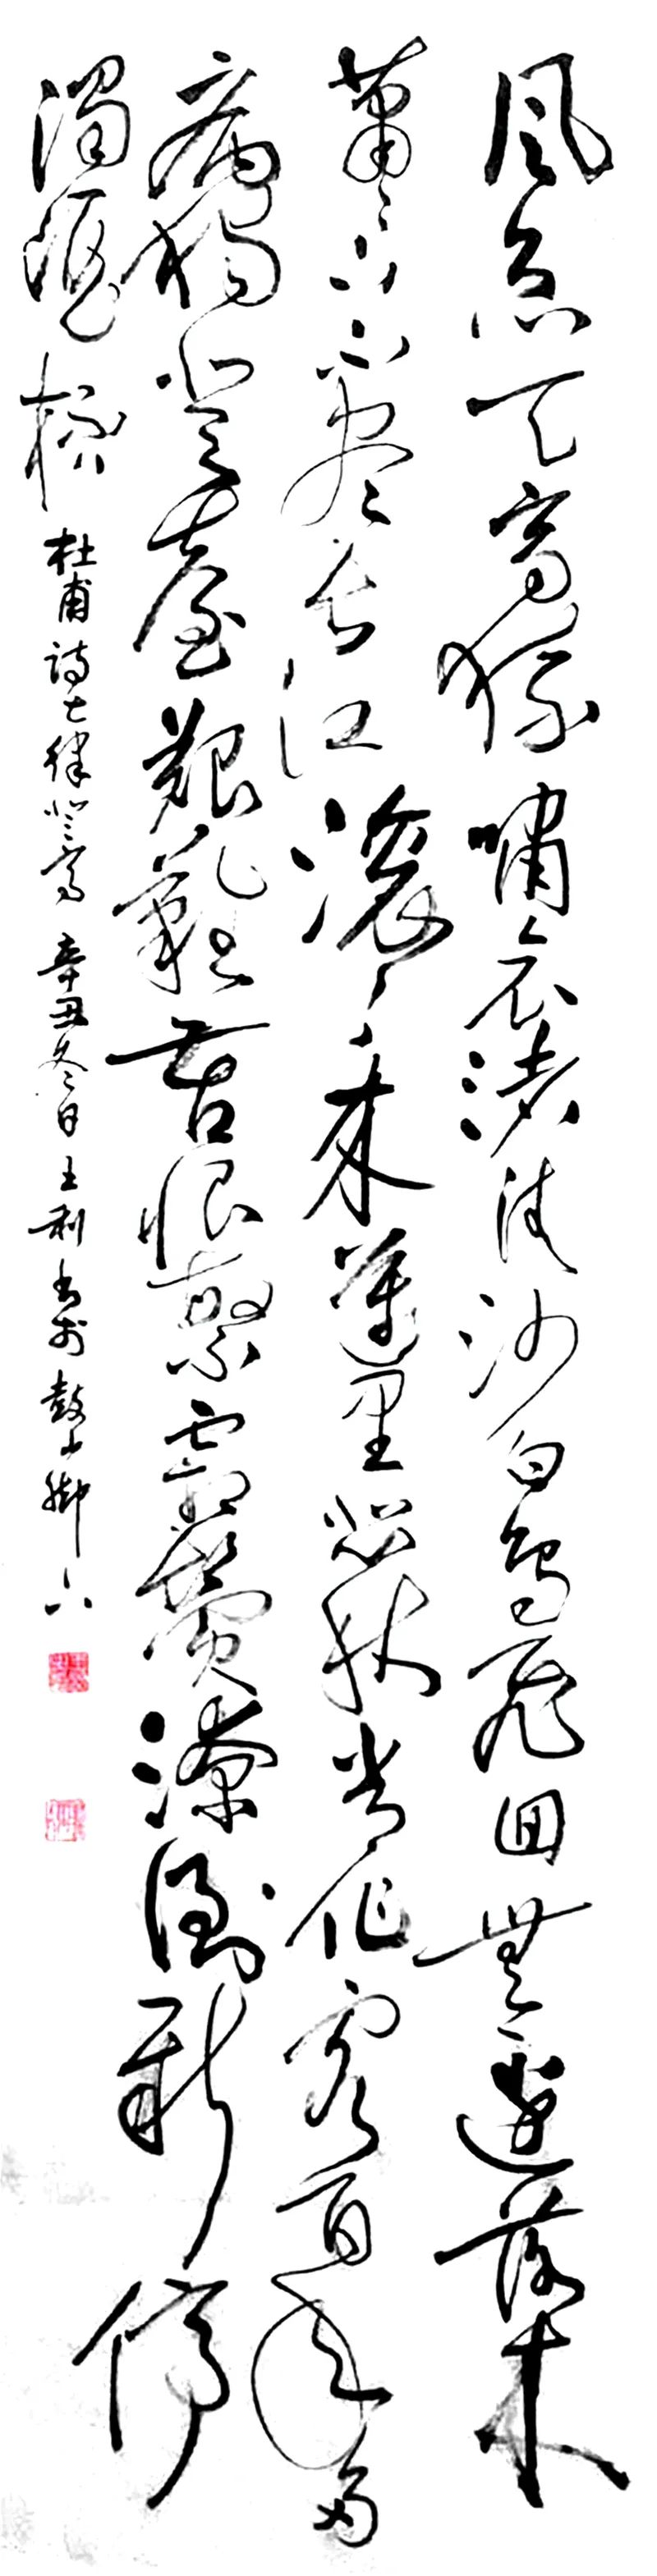 風急天高猿嘯哀渚清沙白鳥飛回無邊落木
蕭蕭下不盡長江滾滾來萬里悲秋常作客百年多
病獨登臺艱難苦恨繁霜鬢潦倒新停
濁酒杯
杜甫詩七律登高 辛丑冬日王利書於鼓山腳下